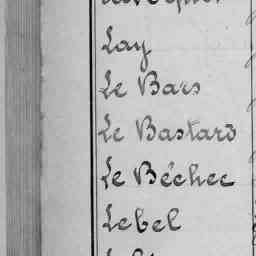 Lay
Le Bars
Le Bastard
Le Béchec
Lebel